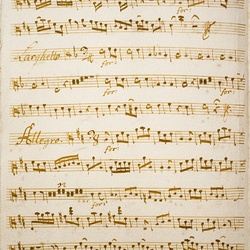 Larghetto
for:
for:
Allegro.
for:
for: